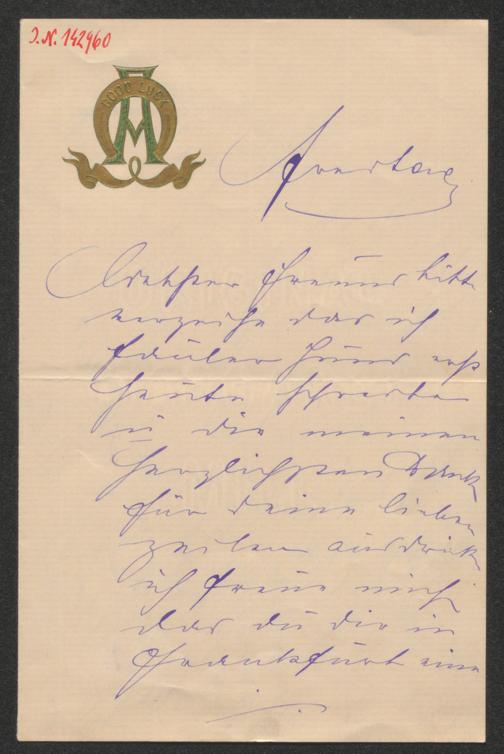 J.N. 142960
GOOD LUCK
Freitag
Bester Freund bitte
verzeihe das ich
fauler Hund erst
heute schreibe
u dir meinen
herzlichsten Dank
für deine lieben
zeilen ausdrücke
ich freue mich
das du dir in
Frankfurt eine